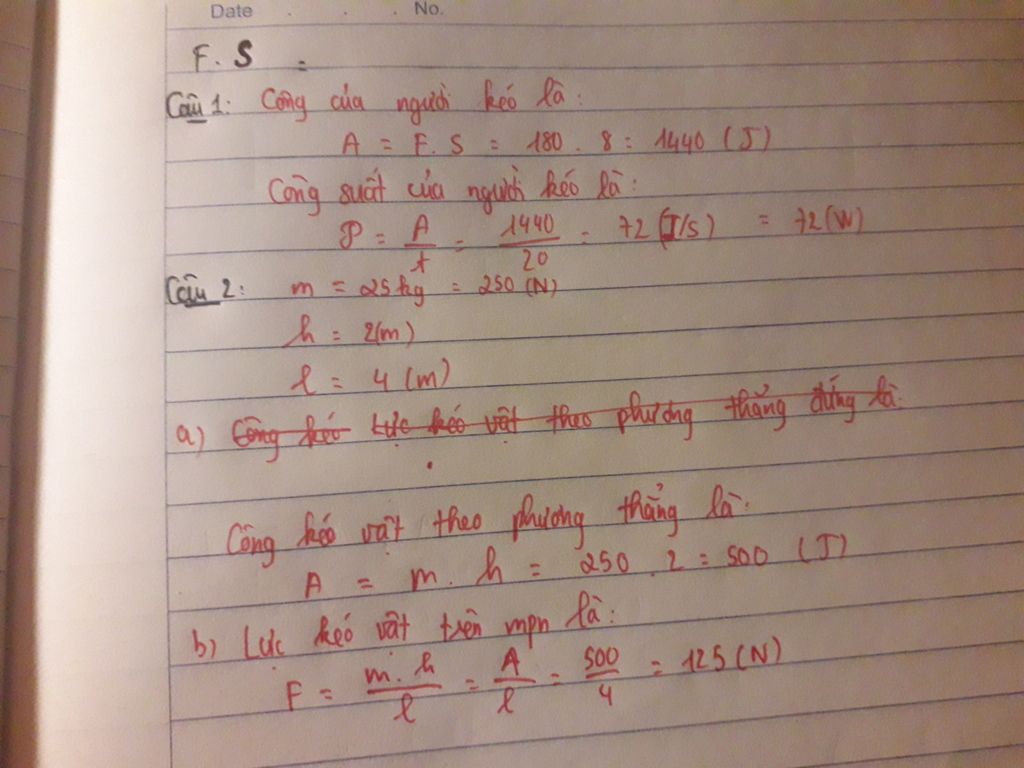 Date . . . No.
F. S =
Câu 1: Công của người kéo là:
A = F. S = 180 . 8 = 1440 (J)
Công suất của người kéo là:
P = A/t = 1440/20 = 72 (J/s) = 72 (W)
Câu 2: m = 25kg = 250 (N)
h = 2(m)
l = 4 (m)
a) Công kéo Lực kéo vật theo phương thẳng đứng là:
Công kéo vật theo phương thẳng là:
A = m. h = 250 . 2 = 500 (J)
b) Lực kéo vật trên mpn là:
F = m. h/l = A/l = 500/4 = 125 (N)